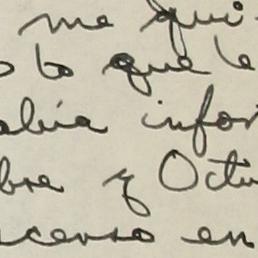 me qui
lo que le
abia infor
bre y Octu
en